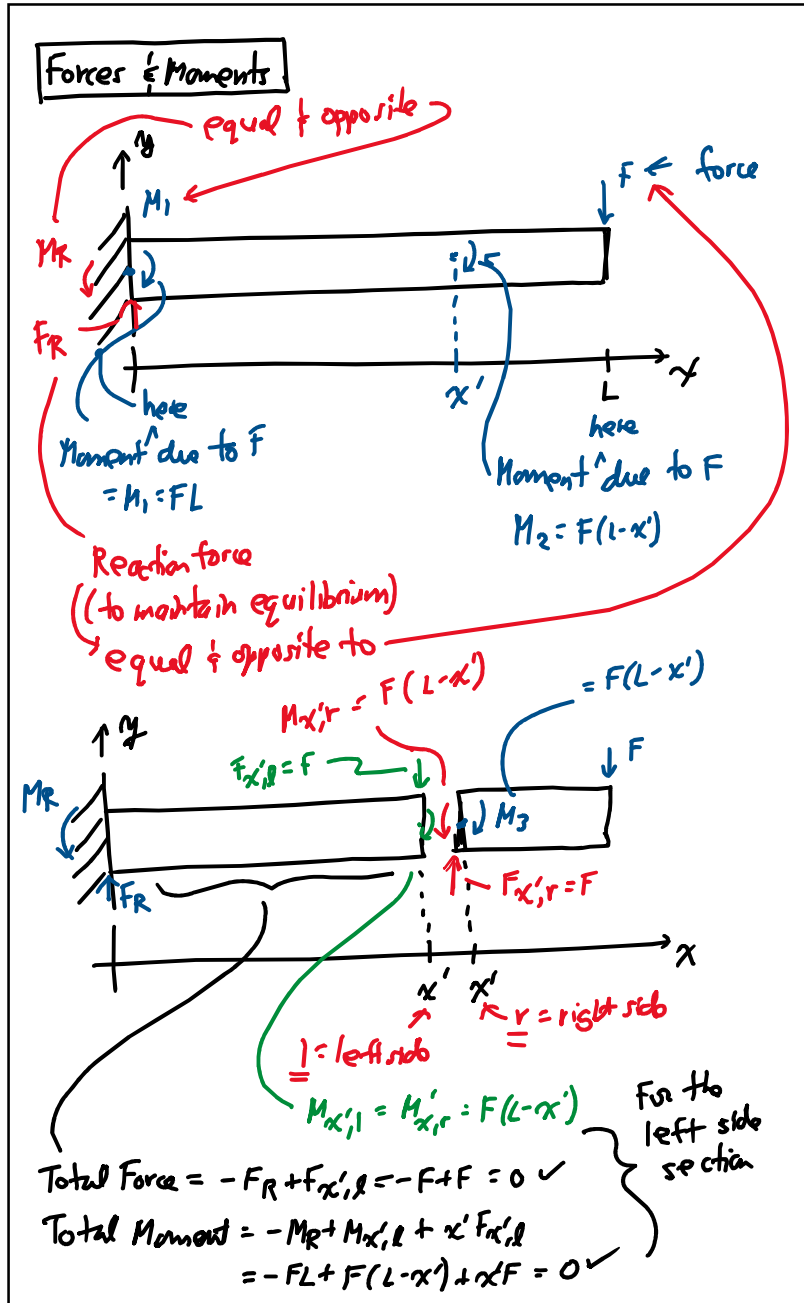 Forces & Moments
equal & opposite
y
M₁
F ← force
M_R
F_R
x'
L
x
here
Moment ^ due to F
= M₁ = FL
here
Moment ^ due to F
M₂ = F(L-x')
Reaction force
(to maintain equilibrium)
equal & opposite to
M_x',r = F(L-x')
= F(L-x')
y
F_x',l = F
F
M_R
M₃
F_R
F_x',r = F
x
x'
x'
l = left side
r = right side
M_x',l = M_x',r = F(L-x')
For the
left side
section
Total Force = -F_R + F_x',l = -F + F = 0 ✓
Total Moment = -M_R + M_x',l + x' F_x',l
= -FL + F(L-x') + x'F = 0 ✓